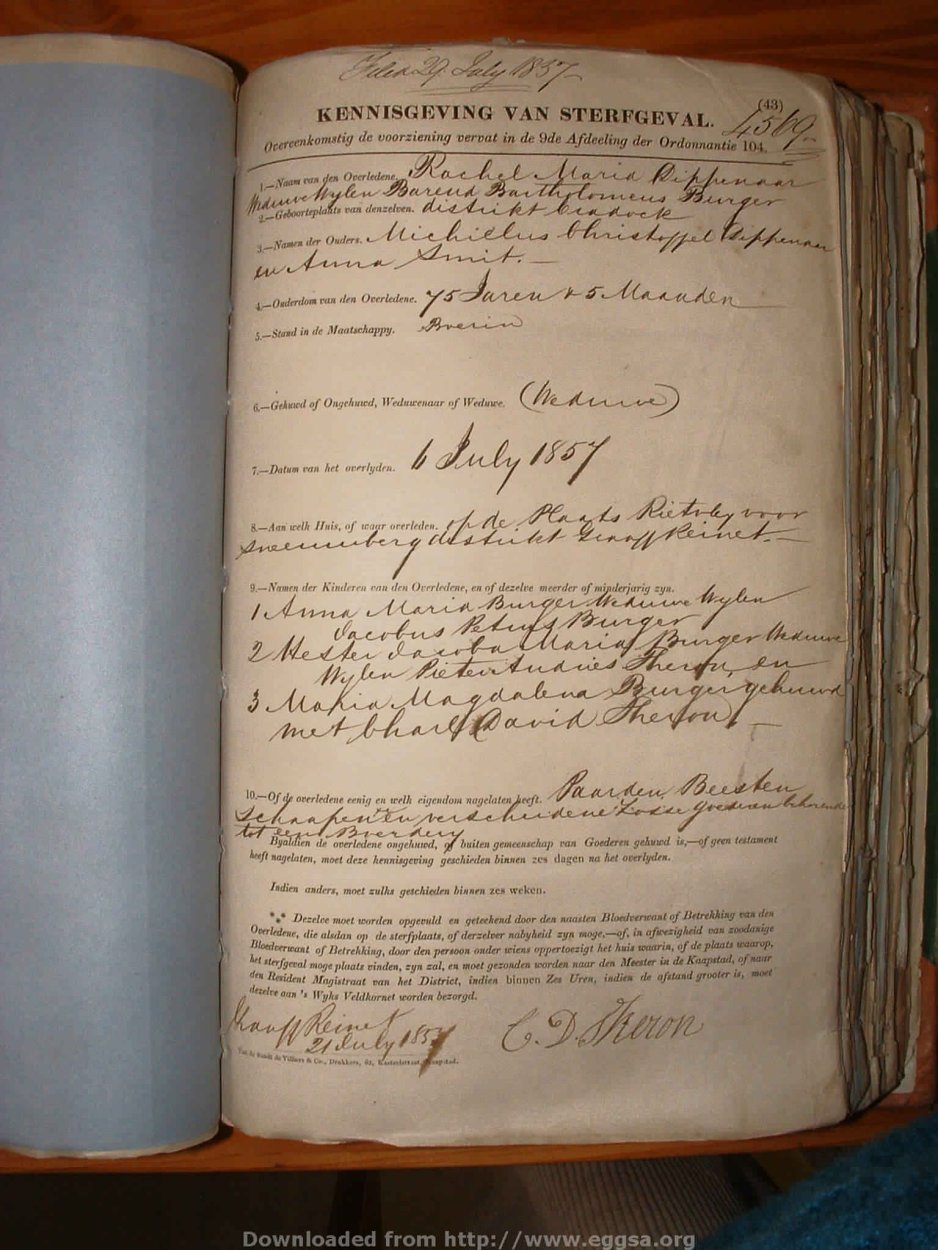 Filed 29 July 1857
(43)
KENNISGEVING VAN STERFGEVAL.
4569
Overeenkomstig de voorziening vervat in de 9de Afdeeling der Ordonnantie 104.
1.—Naam van den Overledene. Rachel Maria Dippenaar
Weduwe Wylen Barend Bartholomeus Burger
2.—Geboorteplaats van denzelven. distrikt Cradock
3.—Namen der Ouders. Michillus Christoffel Dippenaar
en Anna Smit.—
4.—Ouderdom van den Overledene. 75 Jaren & 5 Maanden
5.—Stand in de Maatschappy. Boerin
6.—Gehuwd of Ongehuwd, Weduwenaar of Weduwe. (Weduwe)
7.—Datum van het overlyden. 6 July 1857
8.—Aan welk Huis, of waar overleden. op de Plaats Rietvley voor
Sneeuwberg distrikt Graaff Reinet.—
9.—Namen der Kinderen van den Overledene, en of dezelve meerder of minderjarig zyn.
1 Anna Maria Burger Weduwe Wylen
Jacobus Petrus Burger
2 Hester Jacoba Maria Burger Weduwe
Wylen Pieter Andries Theron, en
3 Maria Magdalena Burger, gehuwd
met Charl David Theron,—
10.—Of de overledene eenig en welk eigendom nagelaten heeft. Paarden, Beesten
Schaapen en verscheidene Losse goederen behorende
tot een Boerdery
Byaldien de overledene ongehuwd, of buiten gemeenschap van Goederen gehuwd is,—of geen testament
heeft nagelaten, moet deze kennisgeving geschieden binnen zes dagen na het overlyden.
Indien anders, moet zulks geschieden binnen zes weken.
Dezelve moet worden opgevuld en geteekend door den naasten Bloedverwant of Betrekking van den
Overledene, die alsdan op de sterfplaats, of derzelver nabyheid zyn moge,—of, in afwezigheid van zoodanige
Bloedverwant of Betrekking, door den persoon onder wiens oppertoezigt het huis waarin, of de plaats waarop,
het sterfgeval moge plaats vinden, zyn zal, en moet gezonden worden naar den Meester in de Kaapstad, of naar
den Resident Magistraat van het District, indien binnen Zes Uren, indien de afstand grooter is, moet
dezelve aan 's Wyks Veldkornet worden bezorgd.
Graaff Reinet
21 July 1857
C. D. Theron
Van de Sandt de Villiers & Co., Drukkers, 62, Kasteelstraat, Kaapstad.
Downloaded from http://www.eggsa.org